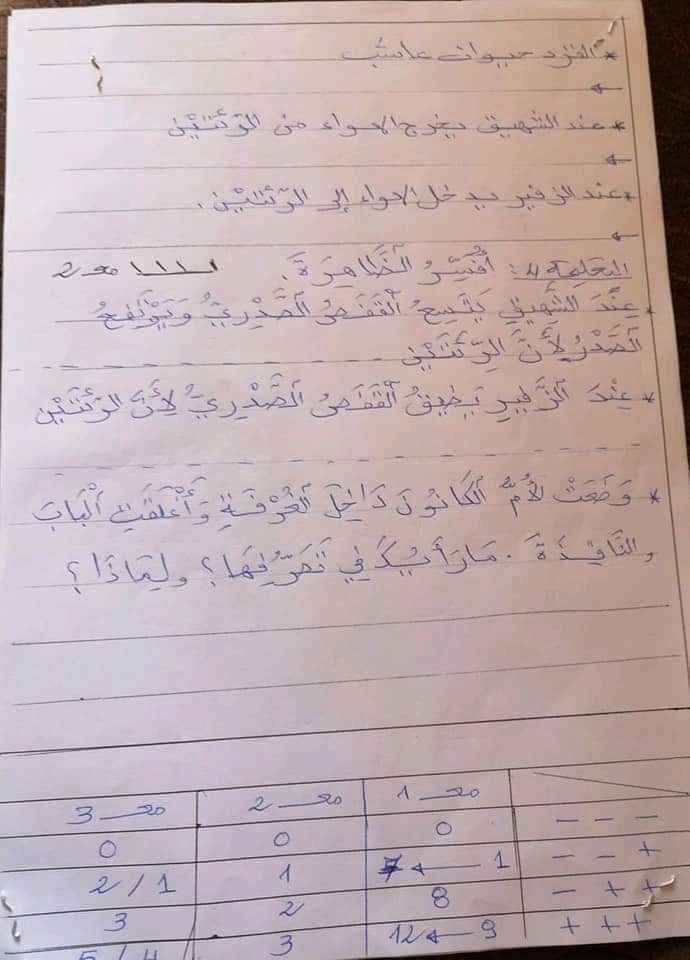 * القرد حيوان عاشب
←
* عند الشهيق يخرج الهواء من الرّئتيْن
←
* عند الزفير يدخل الهواء إلى الرّئتيْن.
←
التعليمة 4: أُفَسِّرُ الظَّاهِرَةَ. معـ 2
* عِنْدَ الشَّهِيقِ يَتَّسِعُ الْقَفَصُ الصَّدْرِيُّ وَيَرْتَفِعُ
الصَّدْرُ لِأَنَّ الرِّئَتَيْنِ
* عِنْدَ الزَّفِيرِ يَضِيقُ الْقَفَصُ الصَّدْرِيُّ لِأَنَّ الرّئَتَيْن
* وَضَعَتْ الأُمُّ الْكَانُونَ دَاخِلَ الْغُرْفَةِ وَأَغْلَقَتِ الْبَابَ
والنَّافِذَةَ. مَا رَأْيُكَ فِي تَصَرُّفِهَا؟ ولِمَاذَا؟
معـ 1 معـ 2 معـ 3
- - - 0 0 0
+ - - 1 ← 7 1 1 / 2
+ + - 8 2 3
+ + + 9 ← 12 3 4 / 5